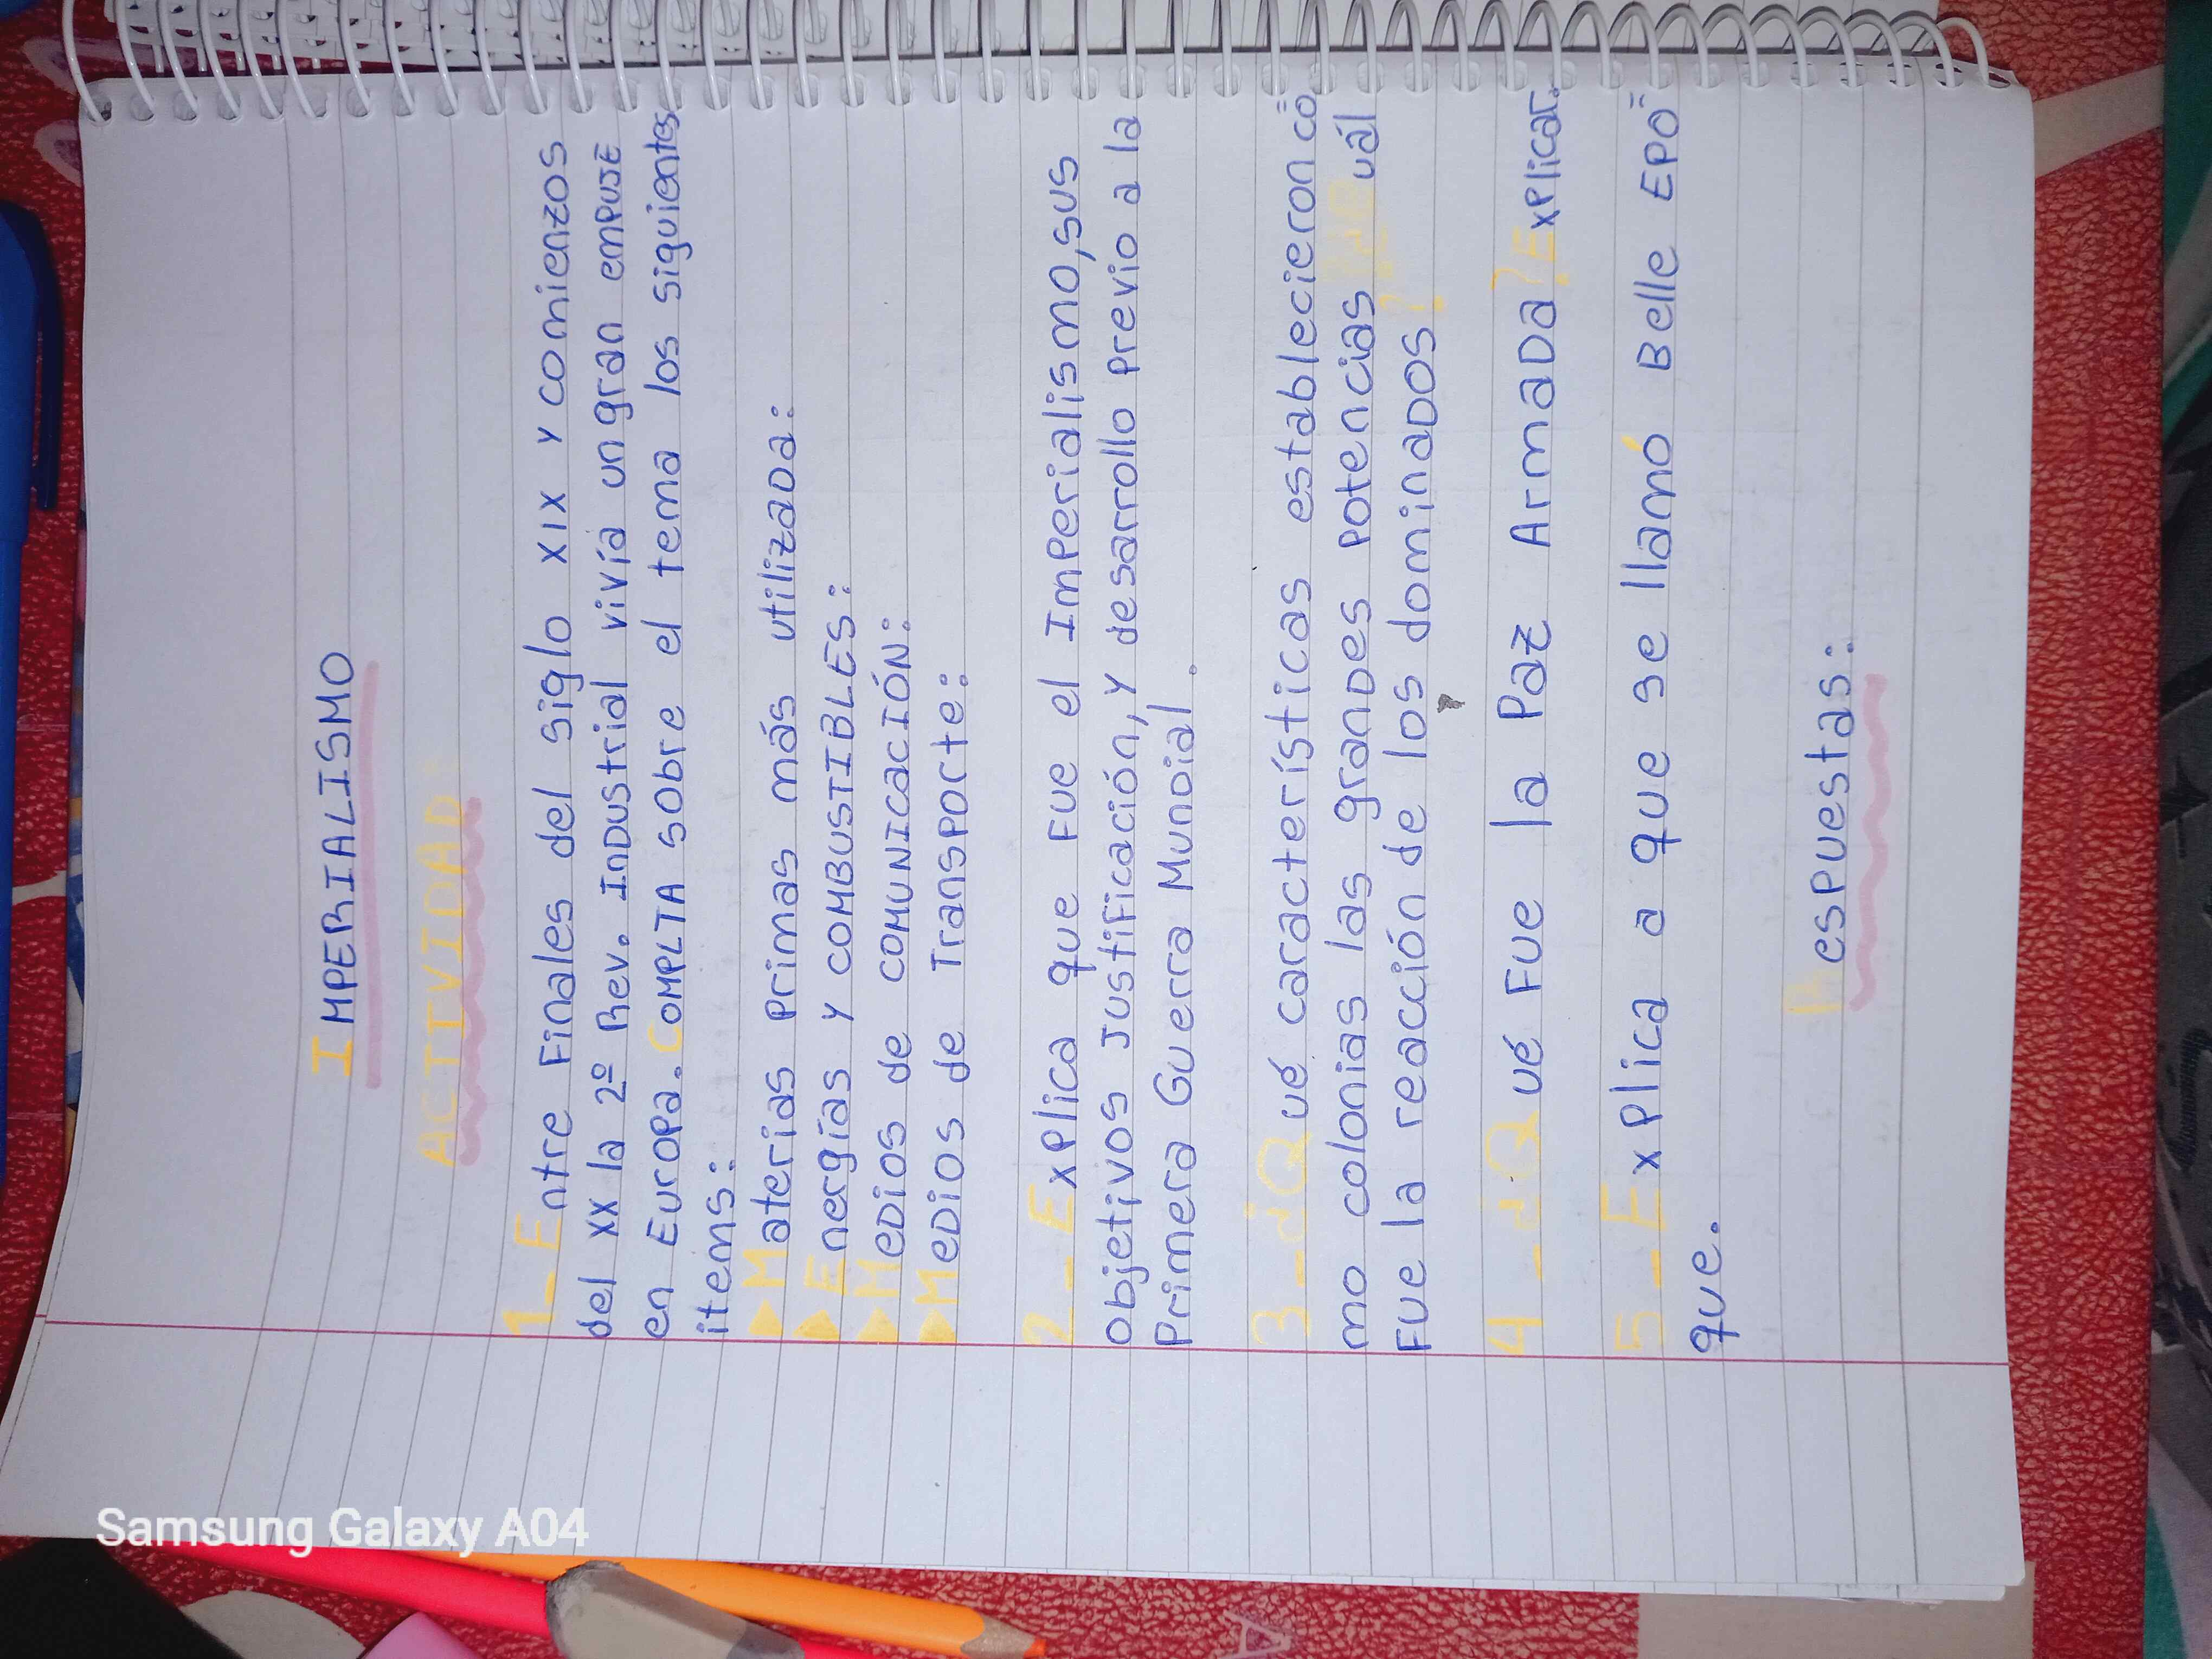 IMPERIALISMO
ACTIVIDAD
1_Entre Finales del siglo XIX y comienzos
del XX la 2º Rev. Industrial vivía un gran empuje
en Europa. Complta sobre el tema los siguientes
items:
▶Materias primas más utilizada:
▶Energías y COMBUSTIBLES:
▶Medios de COMUNICACIÓN:
▶Medios de Transporte:
2_Explica que fue el Imperialismo, sus
objetivos justificación, y desarrollo previo a la
Primera Guerra Mundial.
3_¿Qué características establecieron có=
mo colonias las grandes potencias ¿cuál
Fue la reacción de los dominados?
4_¿Qué Fue la Paz Armada? Explicar.
5_Explica a que se llamó Belle Epo=
que.
Respuestas:
Samsung Galaxy A04